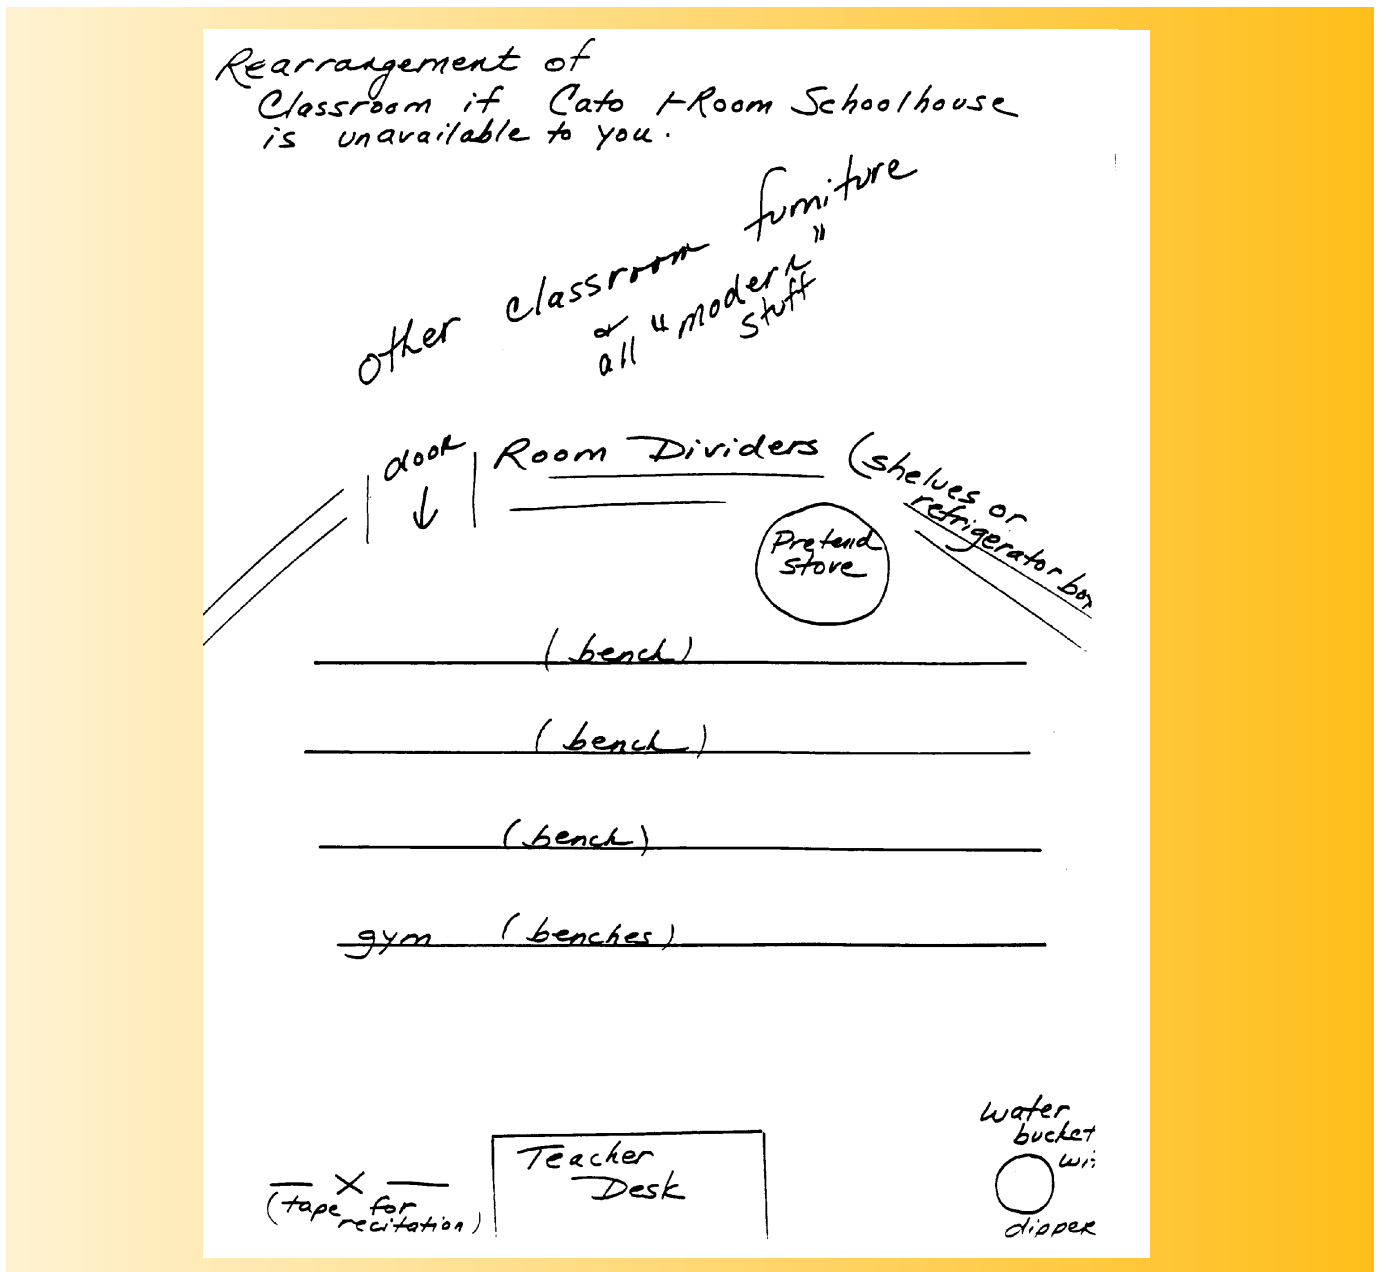 Rearrangement of
Classroom if Cato 1-Room Schoolhouse
is unavailable to you.
other classroom furniture
or
all "modern"
stuff
door
Room Dividers (shelves or
refrigerator box
Pretend
stove
(bench)
(bench)
(bench)
gym (benches)
water
bucket
Teacher
Desk
X
(tape for
recitation)
dipper